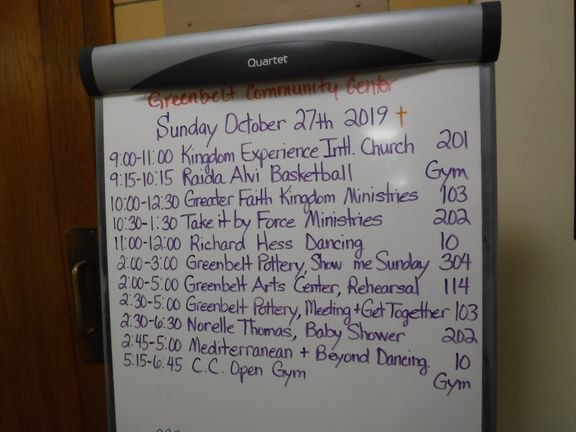 Quartet
Greenbelt Community Center
Sunday October 27th 2019 †
9:00-11:00 Kingdom Experience Intl. Church 201
9:15-10:15 Raida Alvi Basketball Gym
10:00-12:30 Greater Faith Kingdom Ministries 103
10:30-1:30 Take it by Force Ministries 202
11:00-12:00 Richard Hess Dancing 10
2:00-3:00 Greenbelt Pottery, Show me Sunday 304
2:00-5:00 Greenbelt Arts Center, Rehearsal 114
2:30-5:00 Greenbelt Pottery, Meeting + Get Together 103
2:30-6:30 Norelle Thomas, Baby Shower 202
2:45-5:00 Mediterranean + Beyond Dancing 10
5:15-6:45 C.C. Open Gym Gym